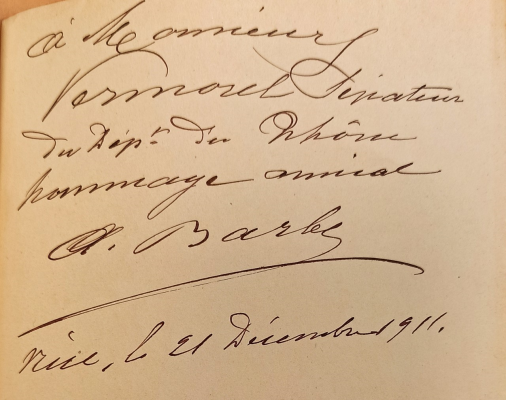 à Monsieur
Vermorel Sénateur
du Dépt. du Rhône
hommage amical
A. Barbey
Nice, le 21 Décembre 1911.